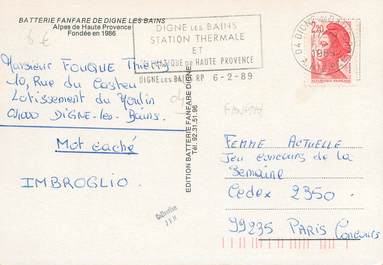 BATTERIE FANFARE DE DIGNE LES BAINS
Alpes de Haute Provence
Fondée en 1986
6 €
DIGNE LES BAINS
STATION THERMALE
ET
DE HAUTE PROVENCE
DIGNE LES BAINS RP 6-2-89
2,20
Monsieur FOUQUE Thierry
10, Rue du Casteu
Lotissement du Moulin
04000 DIGNE-les-Bains.
Mot caché
IMBROGLIO
EDITION BATTERIE FANFARE DIGNE Tél. 92.31.51.96
FEMME ACTUELLE
Jeu concours de la
Semaine
Cedex 2350
99235 PARIS Concours